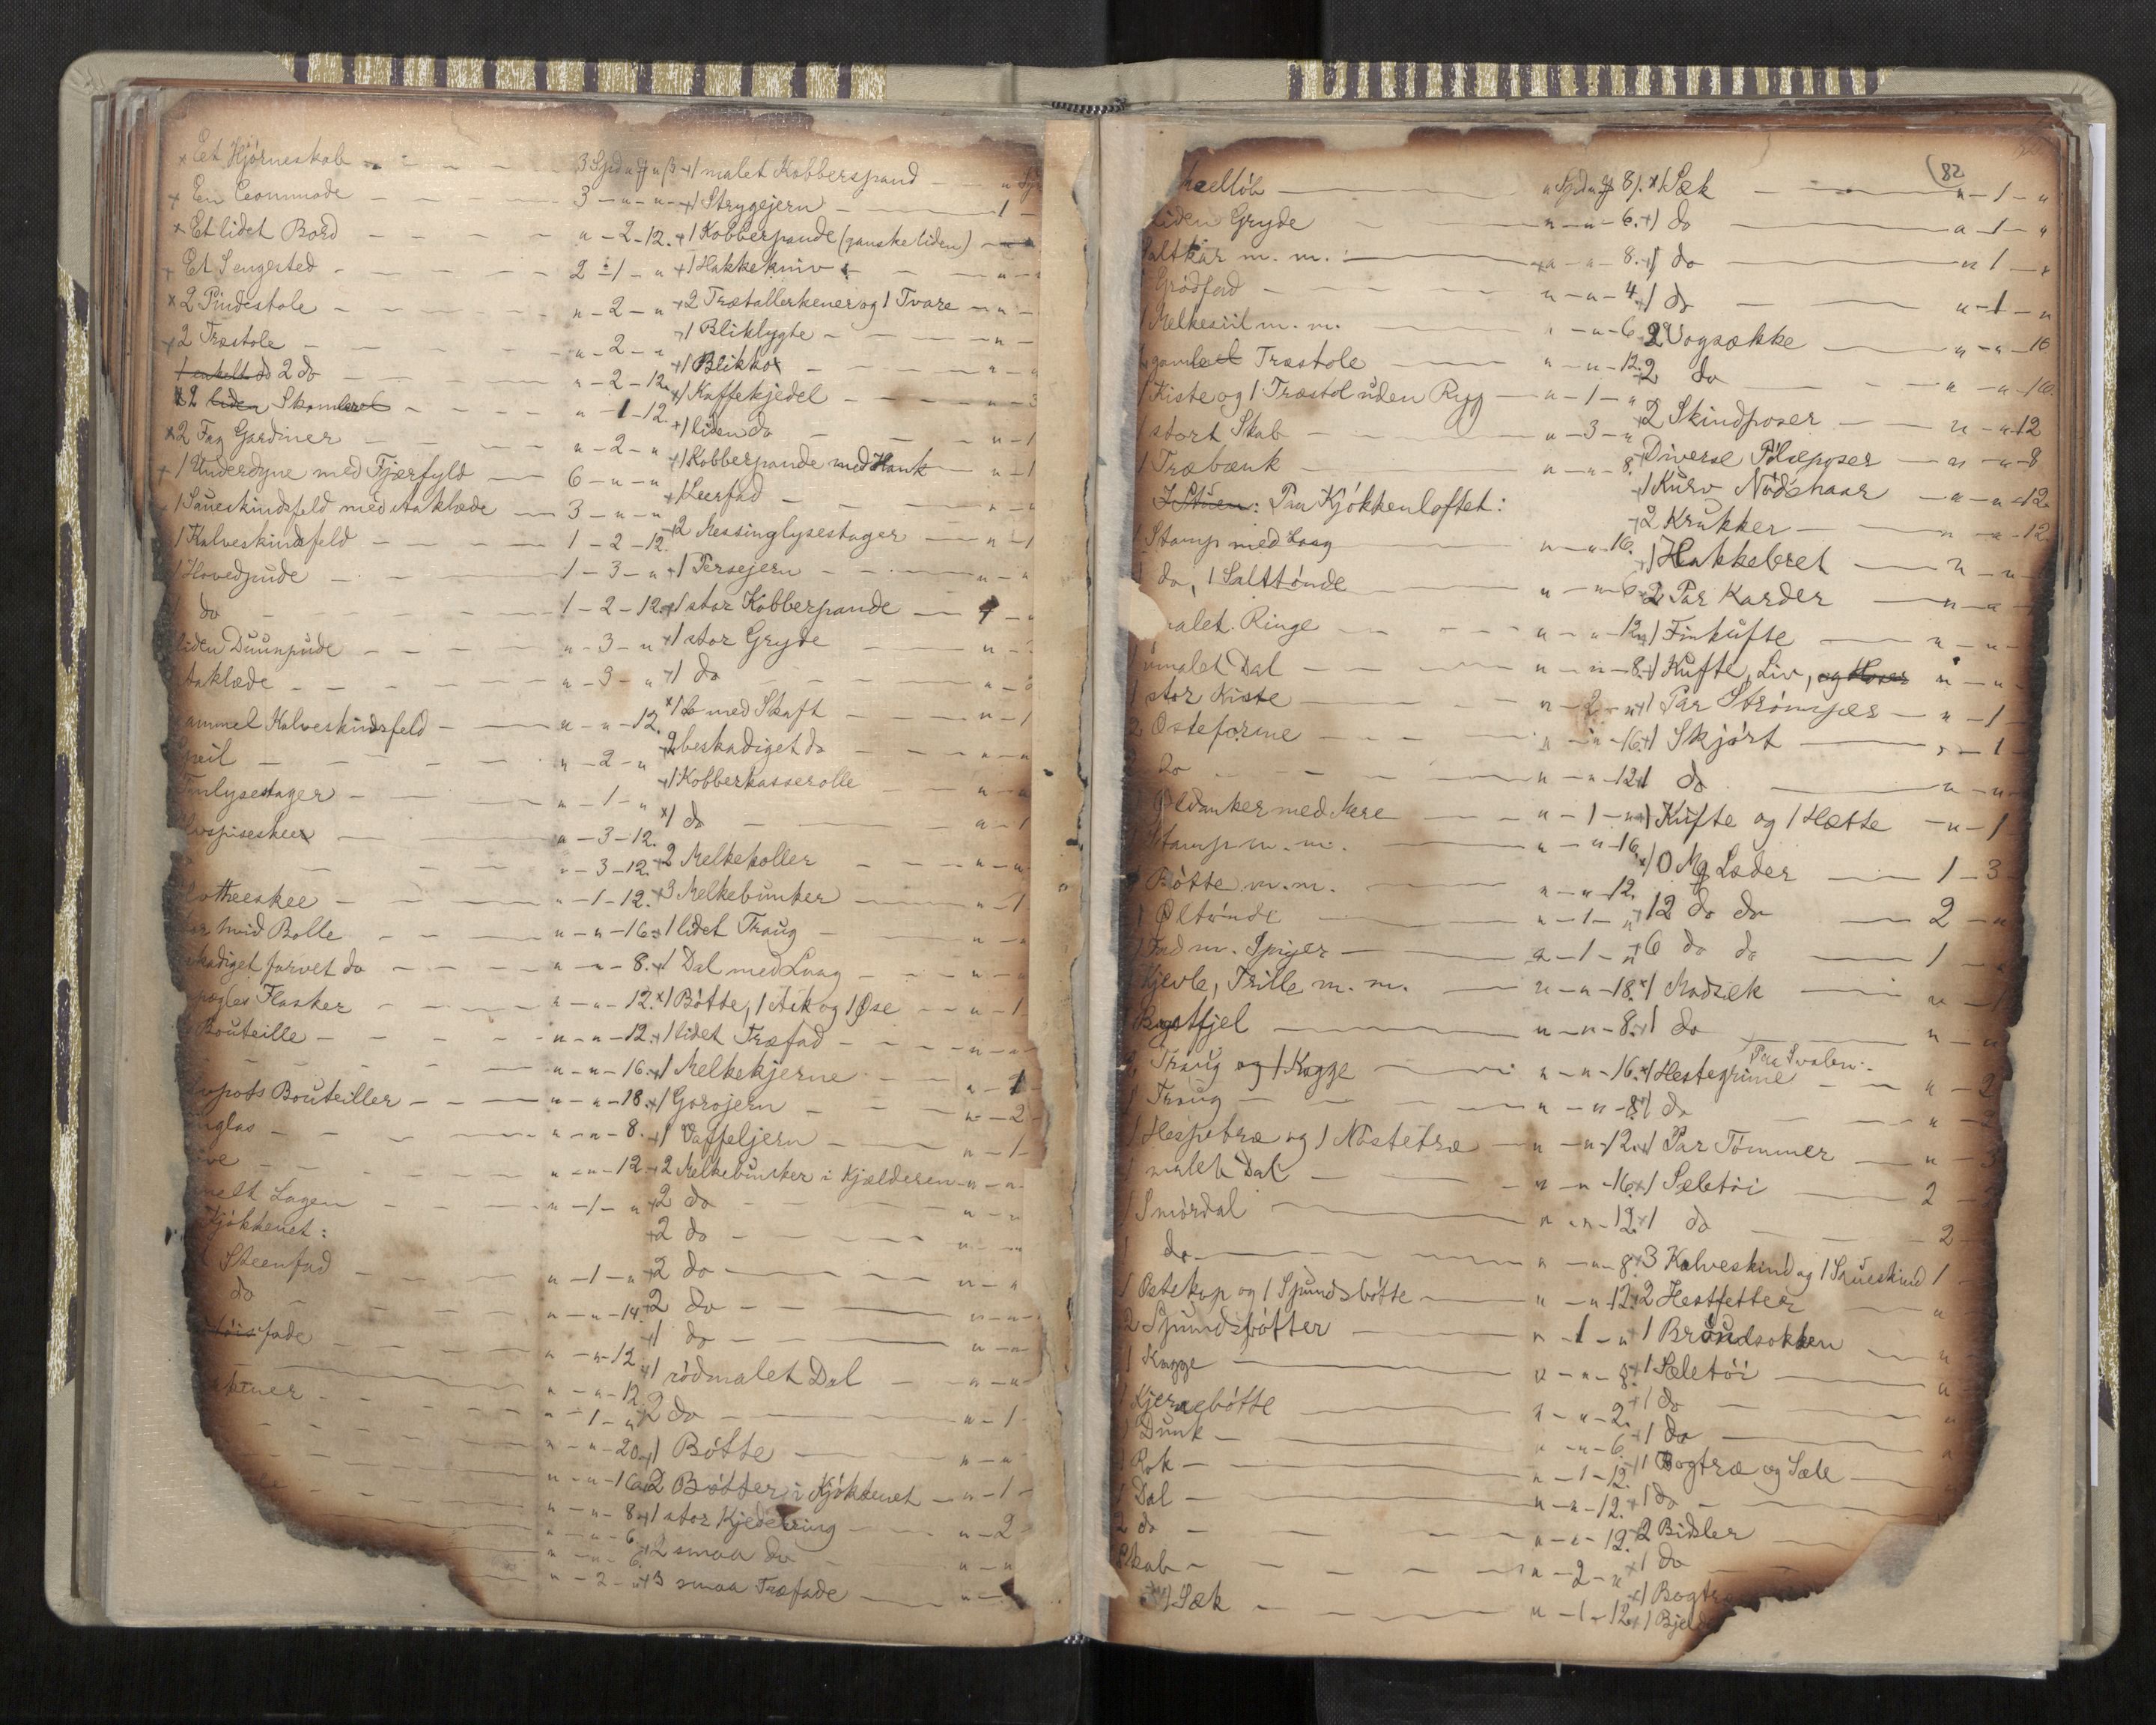 × Et Hjørneskab - - - - 3 Spd " ℔ " β
× En Commode - - - - 3 - " - "
× Et lidet Bord - - - - " - 2 - 12.
× Et Sengested - - - - 2 - 1 - "
× 2 Pindestole - - - - " - 2 - "
× 2 Træstole - - - - " - 2 - "
1 enkelt do 2 do - - - " - 2 - 12.
× 2 liden Skamler - - - " - 1 - 12.
× 2 Fag Gardiner - - - " - 2 - "
+ 1 Underdyne med Fjærfyld - 6 - " - "
1 Saueskindsfeld med Aaklæde - 3 - " - "
1 Kalveskindsfeld - - - 1 - 2 - 12.
1 Hovedpude - - - 1 - 3 - "
1 do - - - 1 - 2 - 12.
liden Duunpude - - - " - 3 - "
Aaklæde - - - " - 3 - "
ammel Kalveskindsfeld - " - " - 12.
peil - - - " - 2 - "
Tinlysestager - - - " - 1 - "
spiseskeer - - - " - 3 - 12.
- - - " - 3 - 12.
Potteeskee - - - " - 1 - 12.
hvid Bolle - - - " - " - 16.
skadiget farvet do - - - " - " - 8.
Flasker - - - " - " - 12.
Bouteille - - - " - " - 12.
- - - " - " - 16.
Bouteiller - - - " - " - 18.
glas - - - " - " - 8.
- - - " - " - 12.
Lagen - - - " - 1 - "
Kjøkkenet:
Steenfad - - - " - 1 - "
do - - - " - " - 14.
fade - - - " - " - 12
- - - " - " - 12.
- - - " - 1 - "
- - - " - " - 20.
- - - " - " - 16.
- - - " - " - 8.
- - - " - " - 6.
- - - " - " - 6.
- - - " - 2 - "
+ 1 malet Kobberspand - "
+ 1 Strygejern - 1 -
+ 1 Kobberpande (ganske liden)
+ 1 Hakkekniv - - - " -
+ 2 Trætallerkener og 1 Tvare - " -
+ 1 Bliklygte - - - " -
+ 1 Blikkox - - - " -
+ 1 Kaffekjedel - - - " - 3
+ 1 liden do - - - " - 1
+ 1 Kobberpande med Hank - " - 1
+ 1 Leerfad - - - " - "
+ 2 Messinglysestager - " - 1
+ 1 Persejern - - - " - "
+ 1 stor Kobberpande - 1 -
+ 1 stor Gryde - " -
+ 1 do - - - " - 3
× 1 do med Skaft - " - 1
+ 2 beskadiget do - " - "
+ 1 Kobberkasserolle - " - "
× 1 do - " - 1
+ 2 Melkekoller - " - "
+ 3 Melkebunker - " - 1
+ 1 lidet Traug - " - "
+ 1 Dal med Laag - " - "
× 1 Bøtte, 1 Ask og 1 Øse - " - 1
+ 1 lidet Træfad - " - "
+ 1 Melkekjerne - " - 1
+ 1 Gorojern - " - 2
+ 1 Vaffeljern - " - 1
+ 2 Melkebunker i Kjælderen - " - "
+ 2 do - " - "
+ 2 do - " - "
+ 2 do - " - "
+ 2 do - " - "
+ 1 do - " - "
+ 1 rødmalet Dal - " - "
+ 2 do - " - 1
+ 1 Bøtte - " - "
+ 2 Bøtter i Kjøkkenet - " - 1
+ 1 stor Kjedelring - " - 2
+ 2 smaa do - " - "
+ 3 smaa Træfade - " -
82
" Spd " ℔ 8 β.
liden Gryde - " - " - 6.
Saltkar m. m. - " - " - 8.
Grødfad - " - " - 4.
1 Melkesiil m. m. - " - " - 6
2 gamle Træstole - " - " - 12.
1 Kiste og 1 Træstol uden Ryg - " - 1 - "
1 stort Skab - " - 3 - "
1 Træbænk - " - " - 8.
I Stuen: Paa Kjøkkenloftet:
1 Stamp med Laag - " - " - 16.
1 do, 1 Salttønde - " - " - 6
malet Ringe - " - " - 12.
1 umalet Dal - " - " - 8.
1 stor Kiste - " - 2 - "
2 Osteforme - " - " - 16.
do - " - " - 12.
Ølanker med Mere - " - 1 - "
Stamp m. m. - " - " - 16.
Bøtte m. m. - " - " - 12.
1 Øltønde - " - 1 - "
1 Fad m. Spiger - " - 1 - "
Kjevle, Trille m. m. - " - " - 18.
Bagstfjel - " - " - 8.
2 Traug og 1 Kagge - " - " - 16.
1 Traug - " - " - 8.
1 Hespetræ og 1 Nøstetræ - " - " - 12.
1 malet Dal - " - " - 16.
1 Smørdal - " - " - 12.
1 do - " - " - 8.
1 Ostekop og 1 Spundsbøtte - " - " - 12.
2 Spundsbøtter - " - 1 - "
1 Kagge - " - " - 8.
1 Kjernebøtte - " - " - 2.
1 Dunk - " - " - 6.
1 Rok - " - 1 - 12.
1 Dal - " - " - 12.
2 do - " - " - 12.
Skab - " - 2 - "
1 Sæk - " - 1 - 12.
× 1 Sæk - " - 1 - "
+ 1 do - " - 1 - "
+ 1 do - " - 1 - "
+ 1 do - " - 1 - "
2 Vogsække - " - " - 16
+ 2 do - " - " - 16.
+ 2 Skindposer - " - " - 12
+ Diverse Pølseposer - " - " - 8
+ 1 Kurv Nødehaar - " - " - 12.
+ 2 Krukker - " - " - 12.
+ 1 Hakkebret - " - " -
+ 2 Par Karder - " - " -
+ 1 Finkufte - " - " -
+ 1 Kufte, Liv, og Hoser " - " -
+ 1 Par Strømper - " - 1 -
+ 1 Skjørt - " - 1 -
+ 1 do - " - " -
+ 1 Kufte og 1 Hætte - " - 1 -
× 10 Mg Læder - 1 - 3 -
+ 12 do do - 2 - "
+ 6 do do - 1 -
× 1 Madsæk - " - 1
+ 1 do - " - "
Paa Svalen.
× 1 Hestegrime - " - 2
+ 1 do - " - 2
+ 1 Par Tømmer - " - 3
× 1 Sæletøi - 2 -
× 1 do - 2 -
+ 3 Kalveskind og 1 Saueskind 1 -
+ 2 Hestfetter - "
+ 1 Brøndsokken - "
+ 1 Sæletøi - "
+ 1 do - "
+ 1 do - "
+ 1 Bogtræ og Sæle -
+ 1 do -
+ 2 Bidsler -
× 1 do -
× 1 Bogtr
+ 1 Bjeld